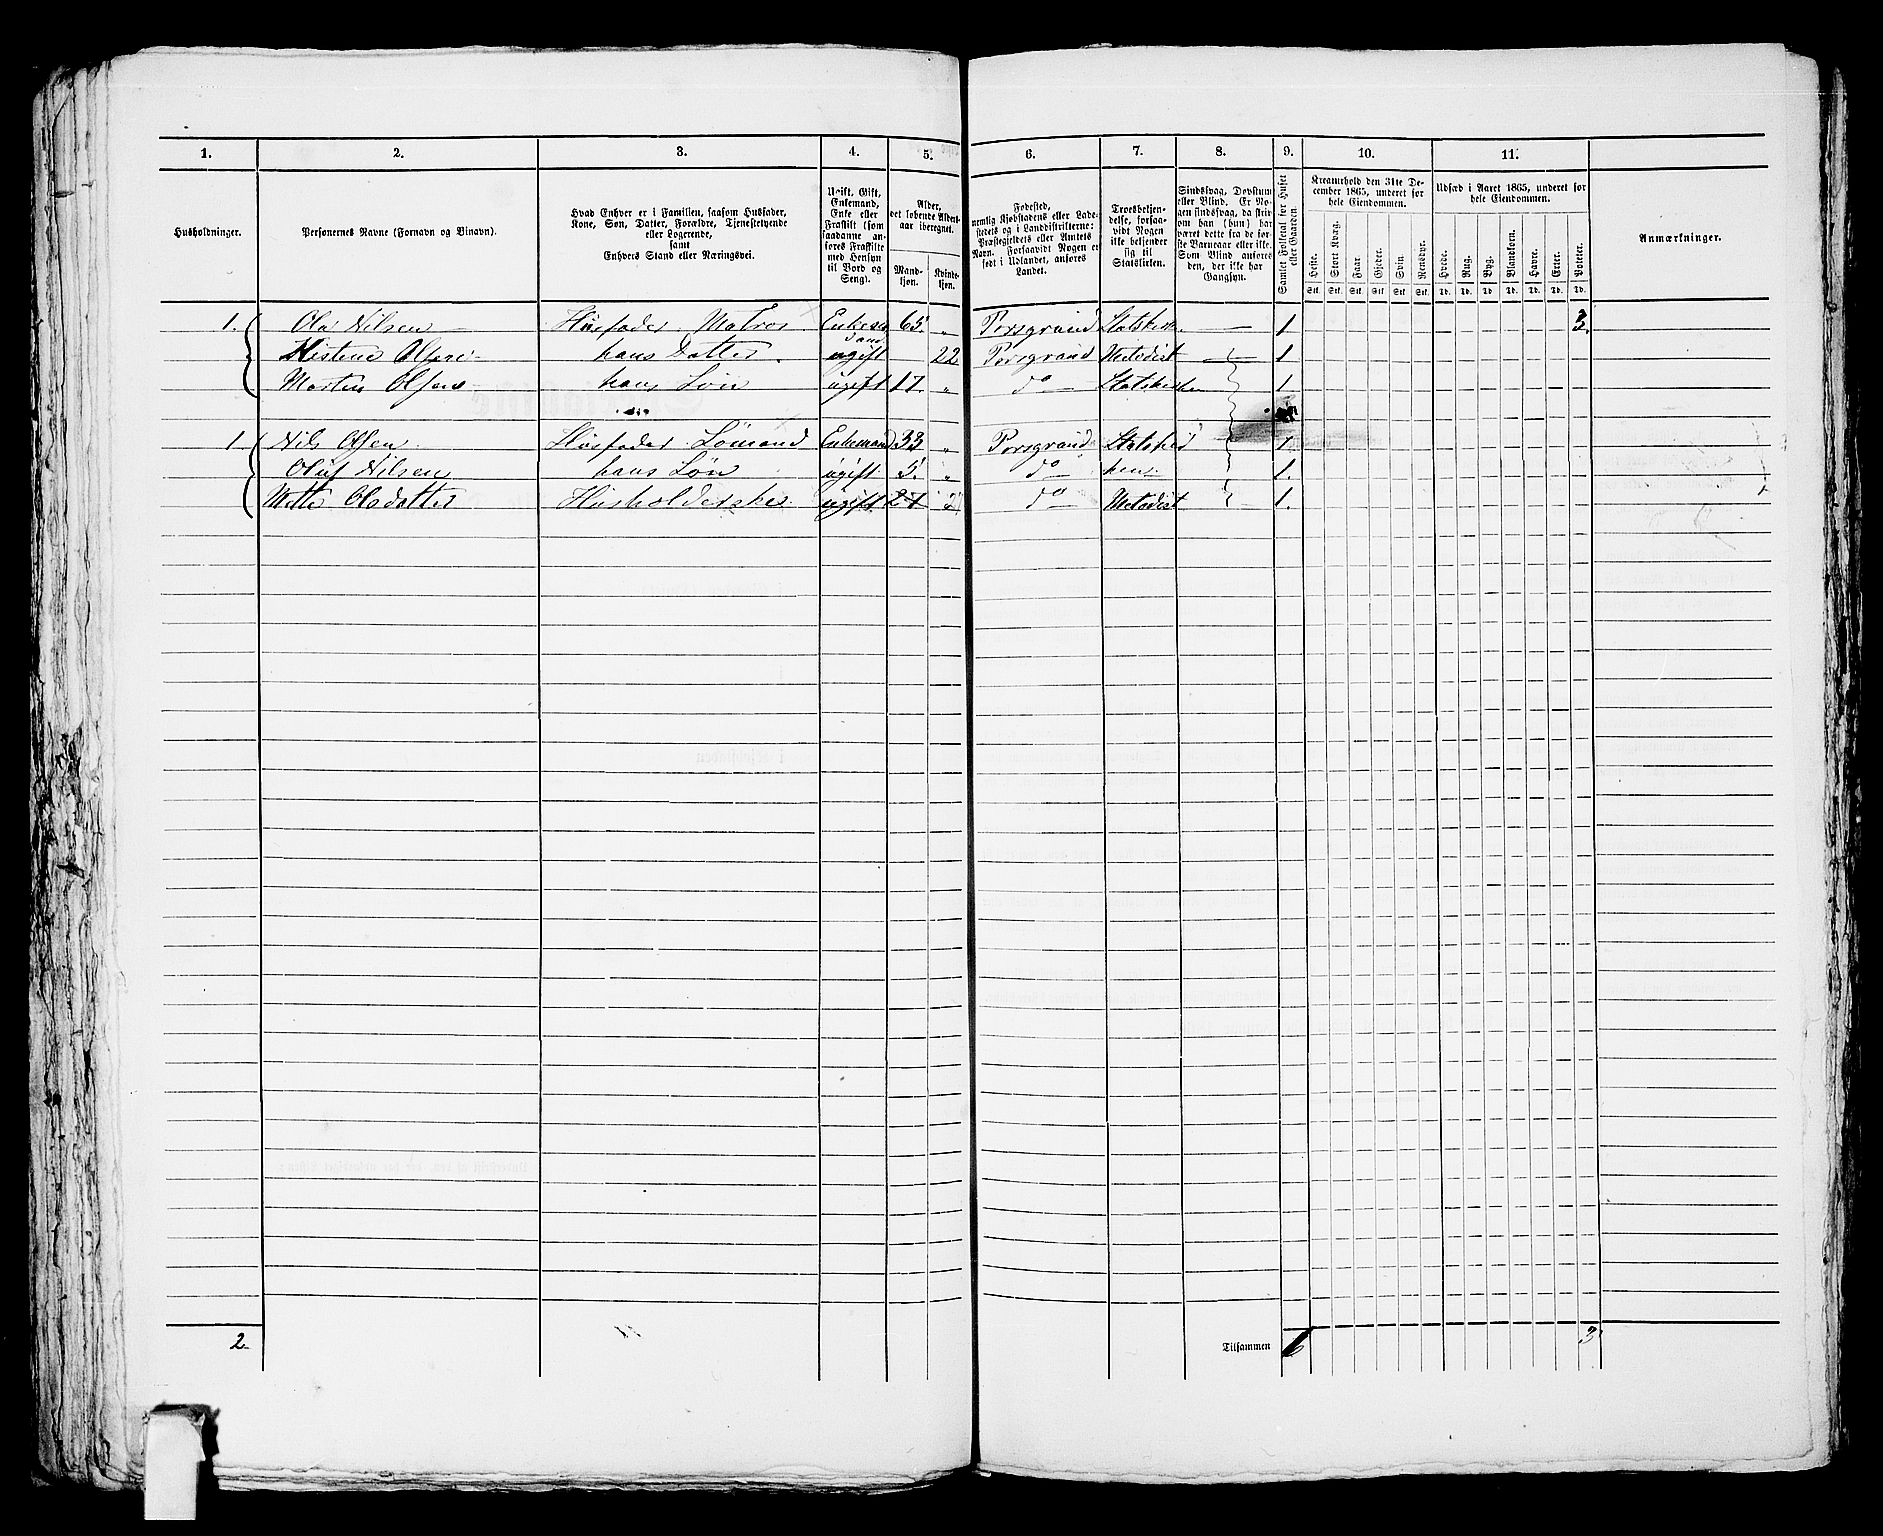 1. 2. 3. 4. 5. 6. 7. 8. 9. 10. 11.
Husholdninger.
Personernes Navne (Fornavn og Tilnavn).
Hvad Enhver er i Familien, saasom Husfader,
Kone, Søn, Datter, Forældre, Tjenestetyende
eller Logerende,
samt
Enhvers Stand eller Næringsvei.
Ugift, Gift,
Enkemand,
Enke eller
Fraskilt (som
saadanne an-
føres Fraskilte
med Hensyn
til Bord og
Seng).
Alder,
det løbende Alders-
aar iberegnet.
Mand-
kjøn.
Kvinde-
kjøn.
Fødested,
nemlig Kjøbstadens eller Lade-
stedets og i Landdistrikterne:
Præstegjeldets eller Amtets
Navn. Forsaavidt Nogen er
født i Udlandet, anføres
Landet.
Troesbekjen-
delse, forsaa-
vidt Nogen
ikke bekjender
sig til
Statskirken.
Sindssvag, Døvstum
eller Blind. Er No-
gen sindssvag, da skri-
ves om han (hun) har
været dette fra de før-
ste Barneaar eller ikke.
Som Blind anføres
den, der ikke har
Gangsyn.
Samlet Folketal for Huset
eller Gaarden.
Kreaturhold den 31te De-
cember 1865, underet for
hele Eiendommen.
Heste. Stort Kvæg. Faar. Gjeder. Svin. Rensdyr.
Stk. Stk. Stk. Stk. Stk. Stk.
Udsæd i Aaret 1865, underet for
hele Eiendommen.
Hvede. Rug. Byg. Blandkorn. Havre. Erter. Poteter.
Td. Td. Td. Td. Td. Td. Td.
Anmærkninger.
1. Ola Nilsen Husfader. Matros Enkes 65. " Porsgrund Statskirk. — 1 3.
Olsen hans Datter. ugift 22 Porsgrund Metodist — 1
Martin Olsen hans Søn ugift 17. " do — Statskirken 1.
1. Nils Olsen. Husfader. Sømand Enkemand 33 " Porsgrund Statskir 1.
Oluf Nilsen hans Søn ugift. 5. " do — ken. 1.
Mette Olsdatter Husholderske ugift 27 do — Metodist — 1.
2. Tilsammen 6 3